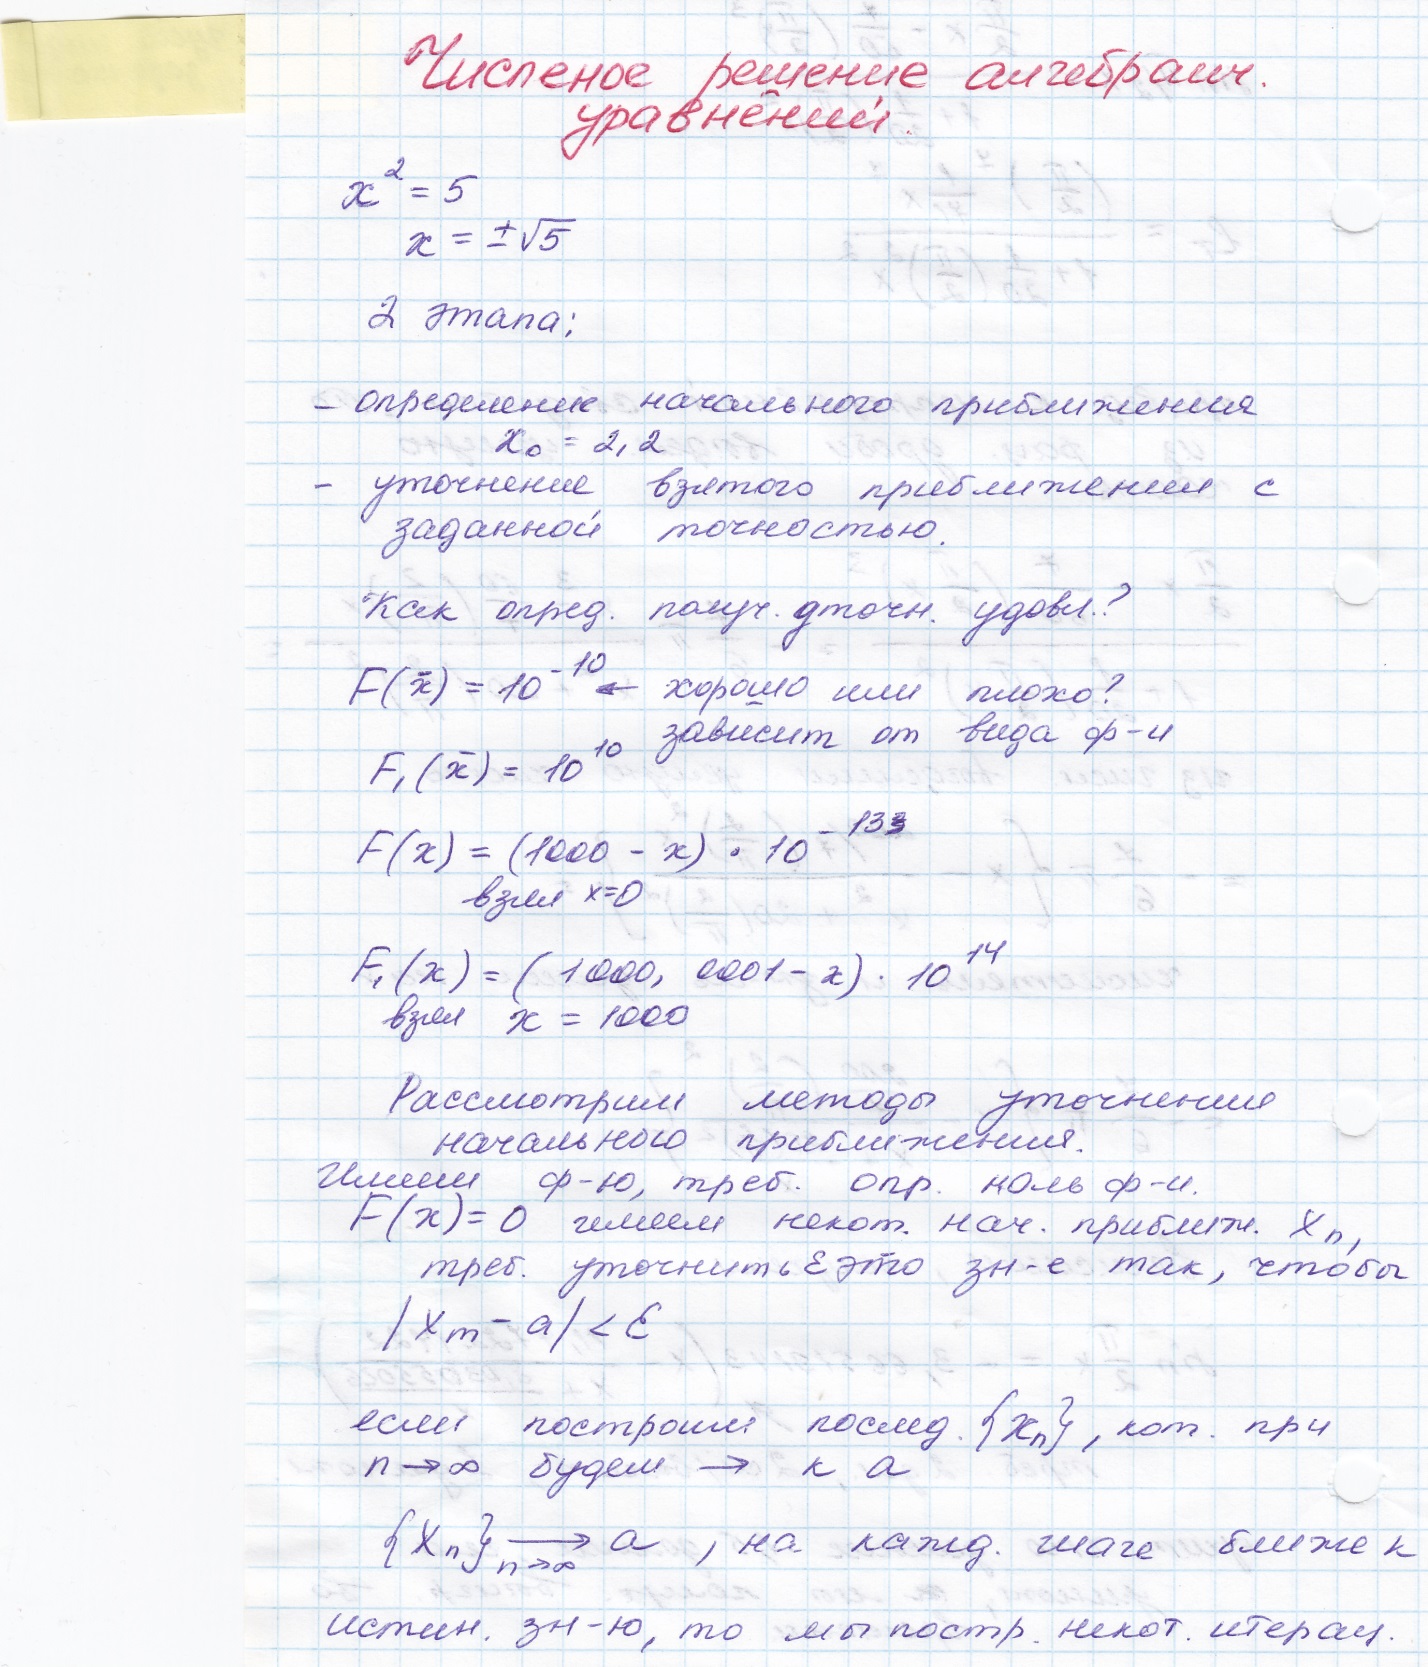 Численое решение алгебраич.
уравнений.
x² = 5
x = ±√5
2 этапа:
– определение начального приближения
x₀ = 2,2
– уточнение взятого приближения с
заданной точностью.
Как опред. получ. уточн. удовл.?
F(x̄) = 10⁻¹⁰ ← хорошо или плохо?
зависит от вида ф-и
F₁(x̄) = 10¹⁰
F(x) = (1000 – x) · 10⁻¹³³
взял x=0
F₁(x) = (1000, 0001 – x) · 10¹⁴
взял x = 1000
Рассмотрим методы уточнения
начального приближения.
Имеем ф-ю, треб. опр. ноль ф-и.
F(x) = 0 имеем некот. нач. приближ. xₙ,
треб. уточнить это зн-е так, чтобы
|xₘ – a| < ε
если построим послед. {xₙ}, кот. при
n → ∞ будем → к a
{xₙ} ⟶ a , на кажд. шаге ближе к
n→∞
истин. зн-ю, то мы постр. некот. итерац.